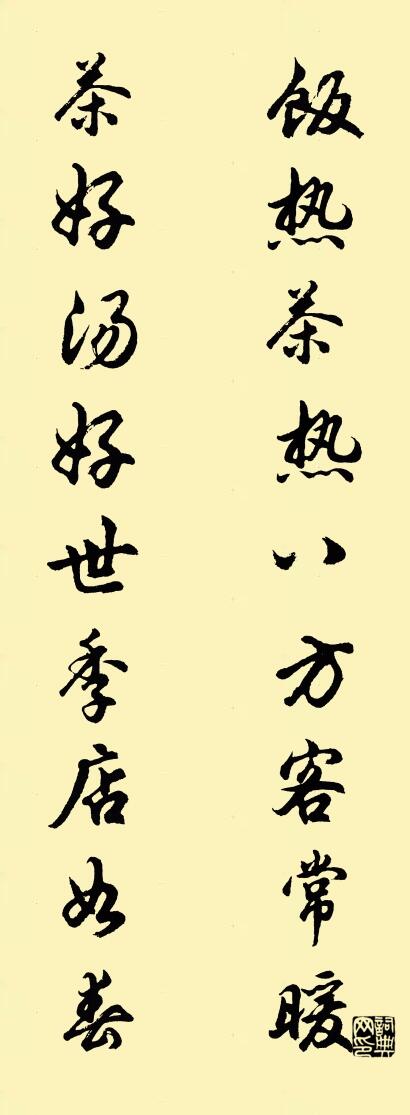 饭热茶热八方客常暖
茶好汤好世季店如春
词典网印